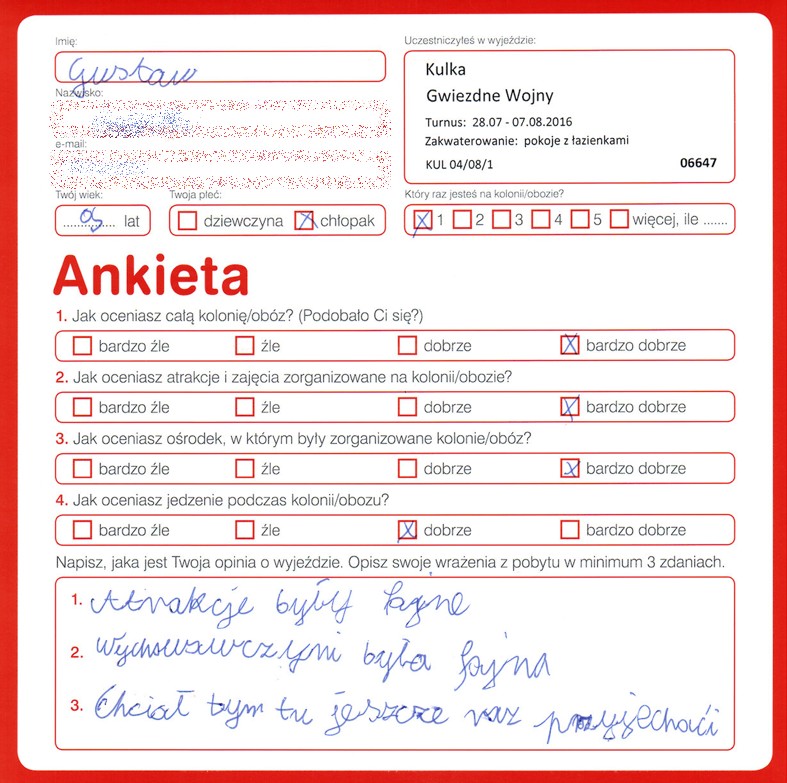 Imię:
Gustaw
Nazwisko:
e-mail:
Twój wiek:
09 lat
Twoja płeć:
dziewczyna chłopak
Uczestniczyłeś w wyjeździe:
Kulka
Gwiezdne Wojny
Turnus: 28.07 - 07.08.2016
Zakwaterowanie: pokoje z łazienkami
KUL 04/08/1 06647
Który raz jesteś na kolonii/obozie?
1 2 3 4 5 więcej, ile .......
Ankieta
1. Jak oceniasz całą kolonię/obóz? (Podobało Ci się?)
bardzo źle źle dobrze bardzo dobrze
2. Jak oceniasz atrakcje i zajęcia zorganizowane na kolonii/obozie?
bardzo źle źle dobrze bardzo dobrze
3. Jak oceniasz ośrodek, w którym były zorganizowane kolonie/obóz?
bardzo źle źle dobrze bardzo dobrze
4. Jak oceniasz jedzenie podczas kolonii/obozu?
bardzo źle źle dobrze bardzo dobrze
Napisz, jaka jest Twoja opinia o wyjeździe. Opisz swoję wrażenia z pobytu w minimum 3 zdaniach.
1. Atrakcje były fajne
2. Wychowawczyni była fajna
3. Chciał bym tu jeszcze raz przyjechaći